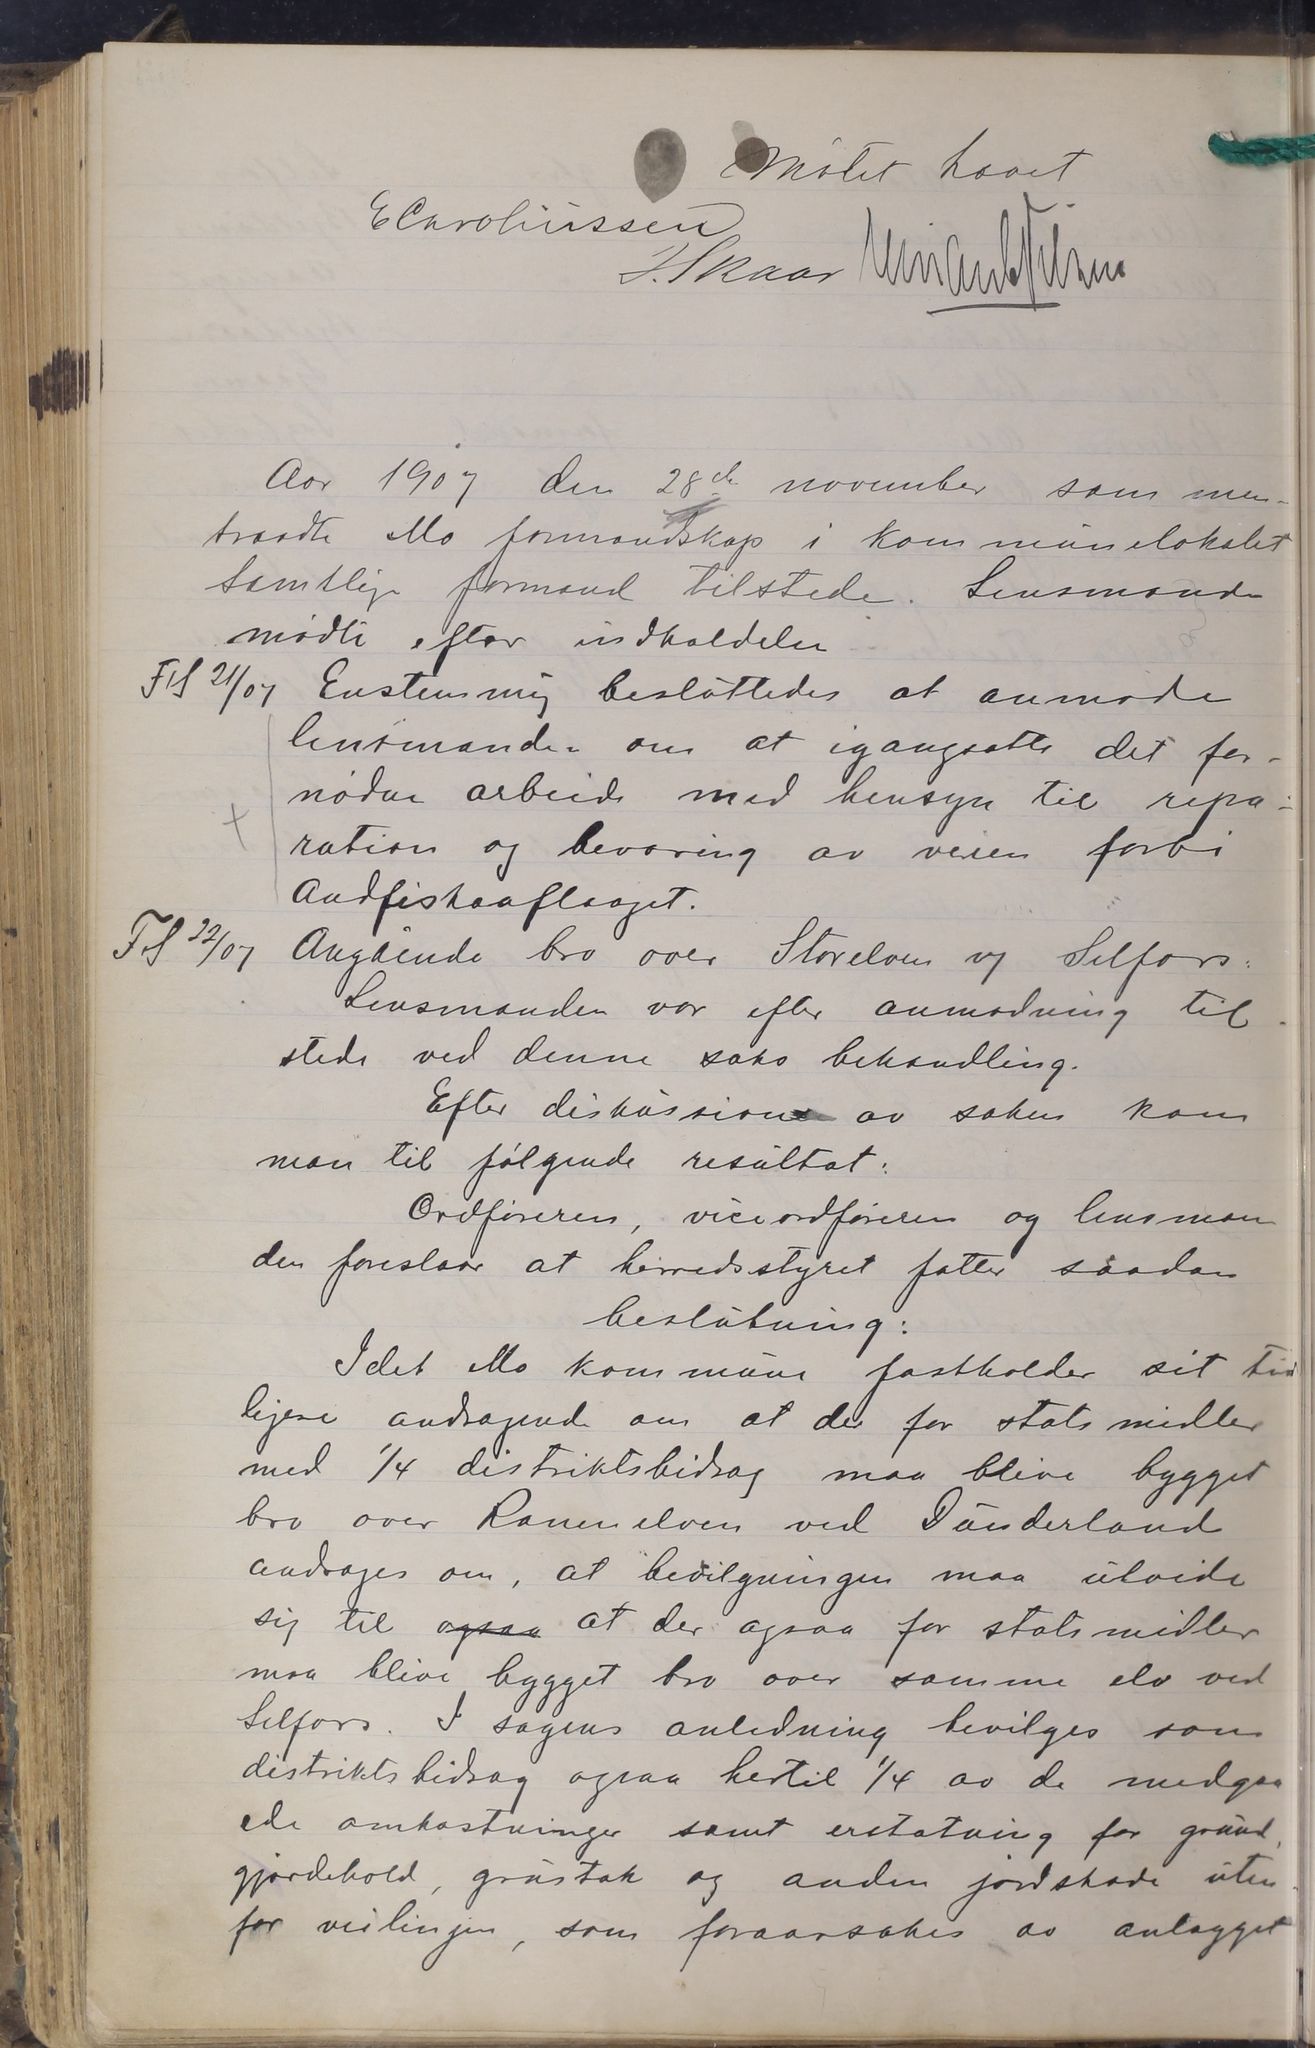 Møtet hævet
E Caroliussen
J. Skaar
Aar 1907 den 28de november sammen-
traadte Mo formandskap i kommunelokalet
Samtlige formænd tilstede. Lensmanden
mødte efter indkaldelse
FS 21/07 Enstemmig besluttedes at anmode
lensmanden om at igangsætte det for-
nødne arbeide med hensyn til repa-
ration og bevaring av veien forbi
Andfiskaaflaaget.
FS 22/07 Angaaende bro over Storelven v/ Selfors:
Lensmanden var efter anmodning til-
stede ved denne saks behandling.
Efter diskussion av saken kom
man til følgende resultat:
Ordføreren, viceordføreren og lensman
den foreslaar at herredsstyret fatter saadan
beslutning:
Idet Mo kommune fastholder sit tid
ligere andragende om at der for statsmidler
med 1/4 distriktsbidrag maa blive bygget
bro over Ranenelven ved Dunderland
andrages om, at bevilgningen maa utvide
sig til ogsaa at der ogsaa for statsmidler
maa blive bygget bro over samme elv ved
Selfors. I sagens anledning bevilges som
distriktsbidrag ogsaa hertil 1/4 av de medgaa
ede omkostninger samt erstatning for grund,
gjærdehold, grustak og anden jordskade uten-
for veilinjen, som foraarsakes av anlægget